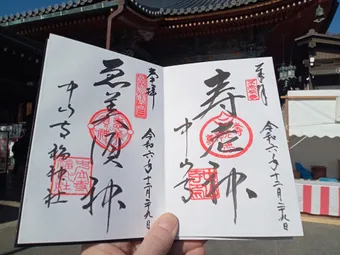 奉拝
寿老神
中山寺
令和六年十二月二十九日
奉拝
恵美須神
中山寺福神社
令和六年十二月二十九日